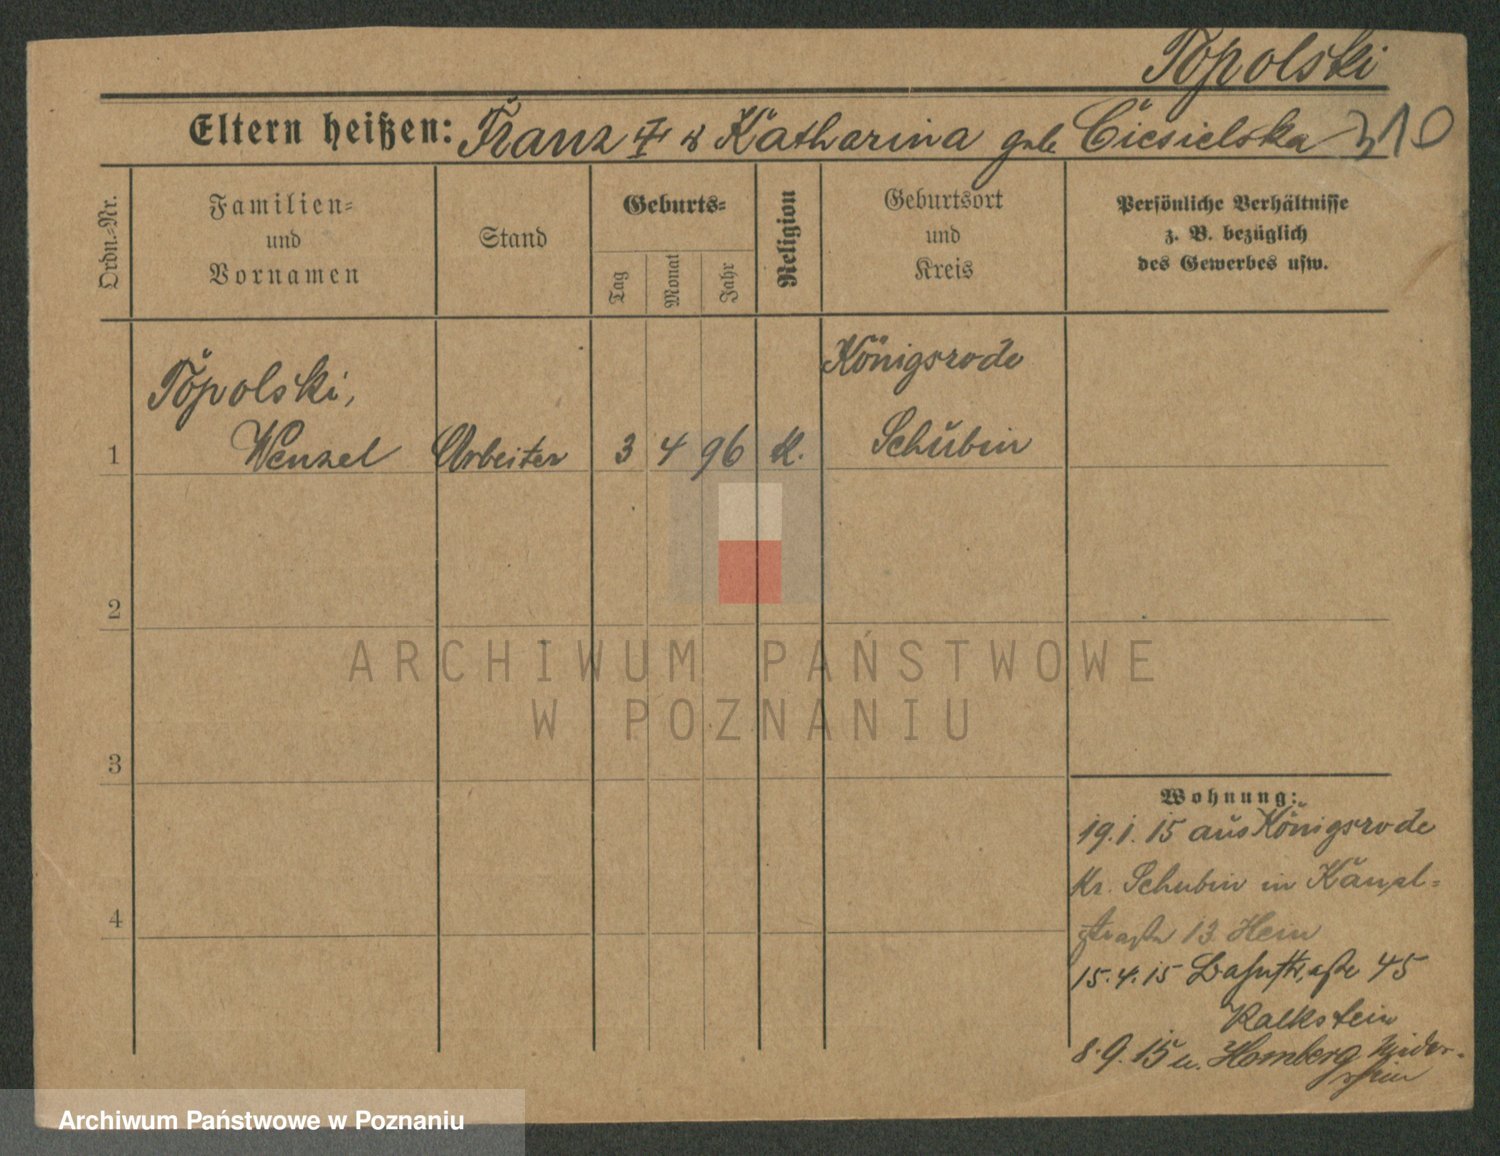 Topolski
Eltern heißen: Franz & Katharina geb. Ciesielska 310
Ordn.-Nr.
Familien-
und
Vornamen
Stand
Geburts-
Tag
Monat
Jahr
Religion
Geburtsort
und
Kreis
Persönliche Verhältnisse
z. B. bezüglich
des Gewerbes usw.
Topolski,
Wenzel
1
Arbeiter
3 4 96
K.
Königsrode
Schubin
2
3
4
Wohnung:
19.1.15 aus Königsrode
Kr. Schubin in
straße 13 Hein
15.4.15 Bahnstraße 45
Kalkstein
8.9.15 n. Homberg Nieder-
rhein
ARCHIWUM PAŃSTWOWE
W POZNANIU
Archiwum Państwowe w Poznaniu